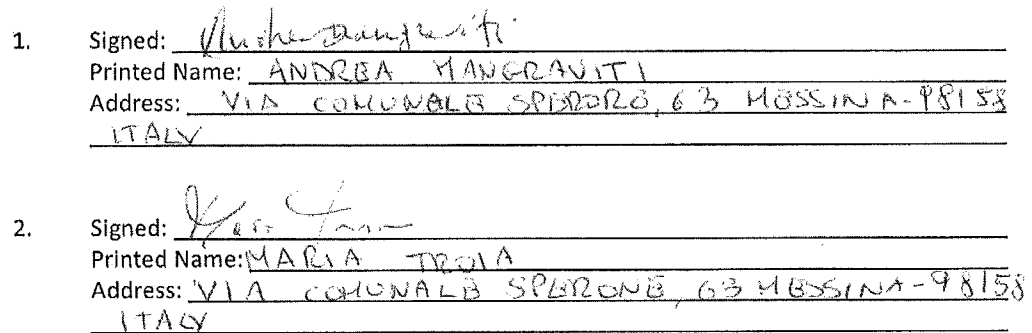 1. Signed: Andrea Mangraviti
Printed Name: ANDREA MANGRAVITI
Address: VIA COMUNALE SPERORE, 63 MESSINA-98158
ITALY
2. Signed:
Printed Name: MARIA TROIA
Address: VIA COMUNALE SPERONE, 63 MESSINA-98158
ITALY